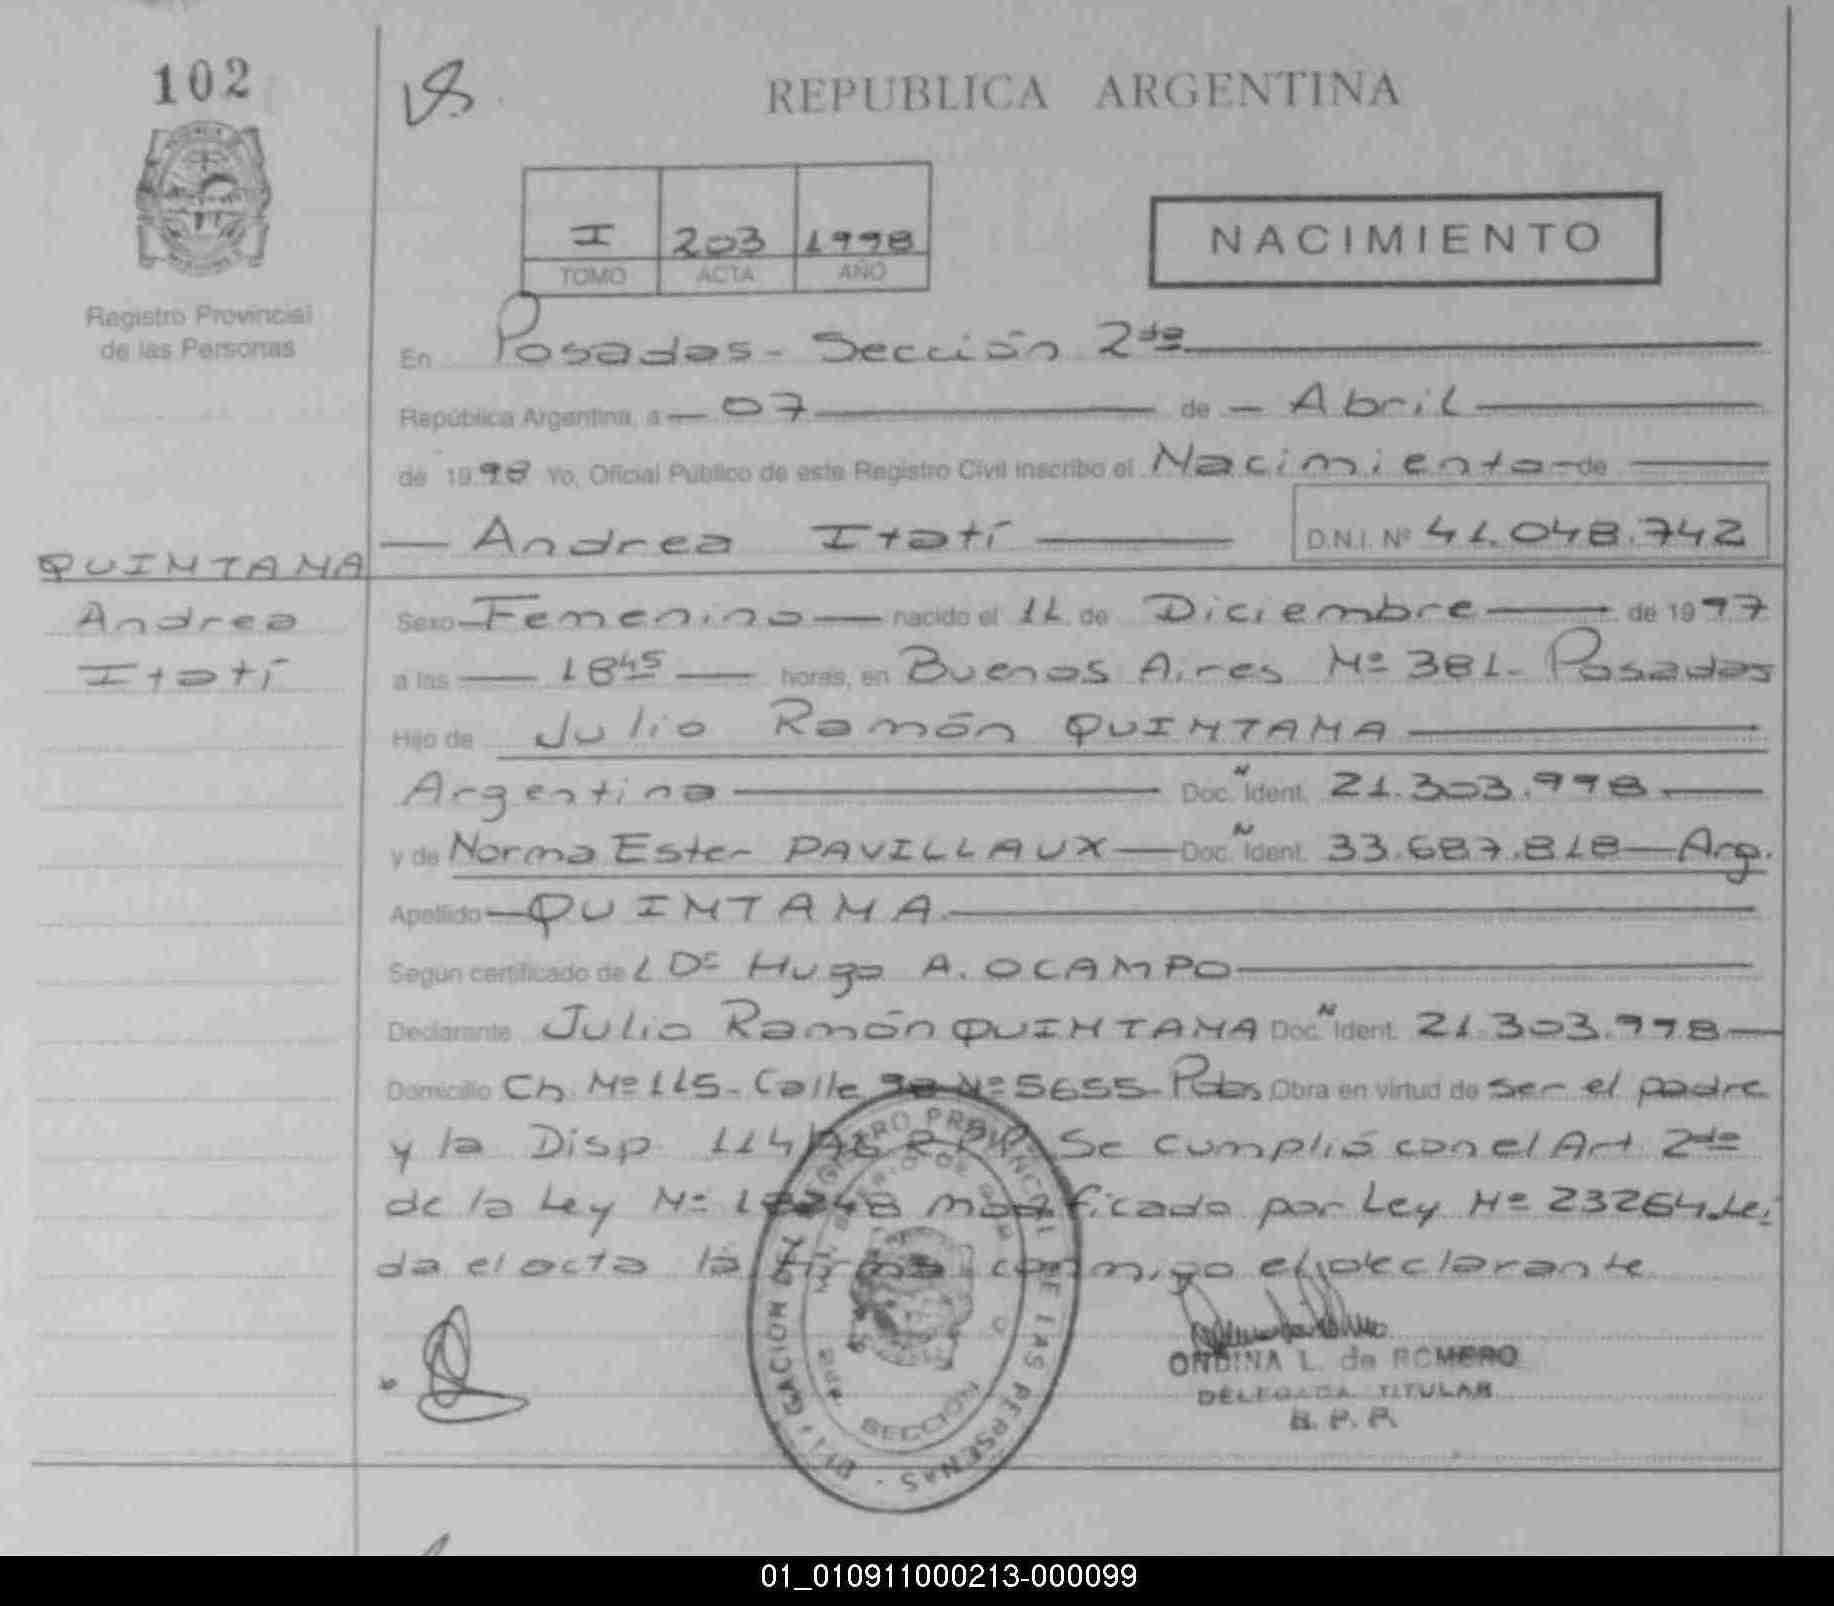 102
REPUBLICA ARGENTINA
I 203 1998
TOMO ACTA AÑO
NACIMIENTO
Registro Provincial
de las Personas
En Posadas - Sección 2da
República Argentina, a 07 de Abril
de 1998 Yo, Oficial Público de este Registro Civil inscribo el Nacimiento de
Andrea Itatí D.N.I. Nº 41.048.742
QUINTANA
Andrea
Itatí
Sexo Femenino nacido el 11 de Diciembre de 1997
a las 18 45 horas, en Buenos Aires Nº 381 - Posadas
Hijo de Julio Ramón QUINTANA
Argentina Doc. N Ident. 21.303.998
y de Norma Ester PAVILLAUX Doc. N Ident. 33.687.818 Arg.
Apellido QUINTANA
Según certificado de L Dr Hugo A. OCAMPO
Declarante Julio Ramón QUINTANA Doc. N Ident. 21.303.998
Domicilio Ch. Nº 115 - Calle Nº 5655 - Pdas Obra en virtud de ser el padre
y la Disp. 114/ R.P.P. Se cumplió con el Art. 2do
de la Ley Nº modificado por Ley Nº 23264. Leí
da el acta la firma conmigo el declarante
ONDINA L. de ROMERO
DELEGADA TITULAR
R. P. P.
DELEGACION DEL REGISTRO PROVINCIAL DE LAS PERSONAS
MINISTERIO DE GOBIERNO
2da. SECCION
01_010911000213-000099